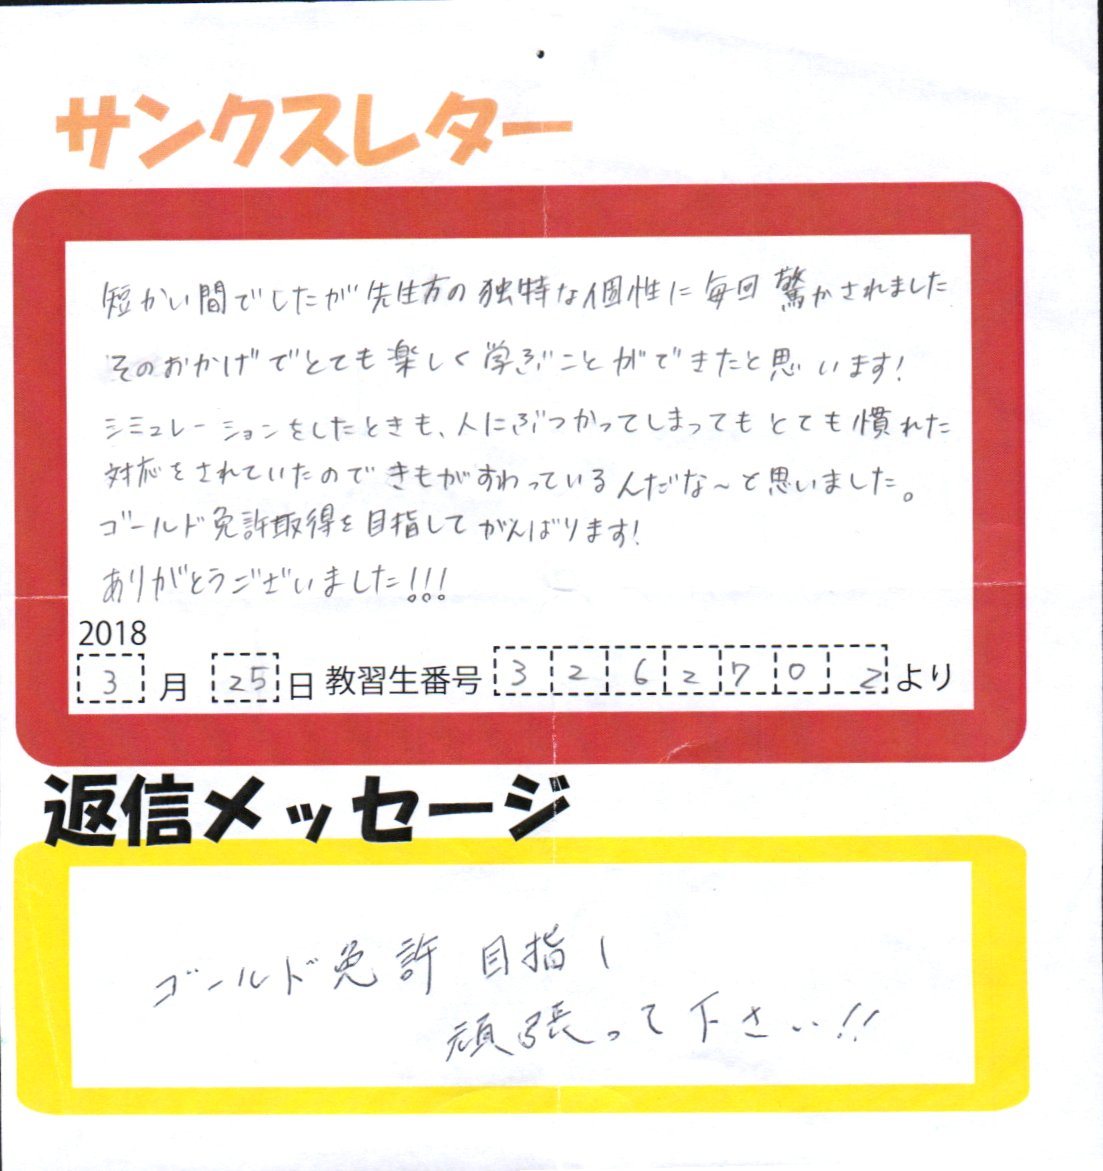 サンクスレター
短かい間でしたが先生方の独特な個性に毎回驚かされました
そのおかげでとても楽しく学ぶことができたと思います!
シミュレーションをしたときも、人にぶつかってしまってもとても慣れた
対応をされていたのできもがすわっているんだな〜と思いました。
ゴールド免許取得を目指してがんばります!
ありがとうございました!!!
2018
3月25日 教習生番号 32627702より
返信メッセージ
ゴールド免許 目指し
頑張って下さい!!